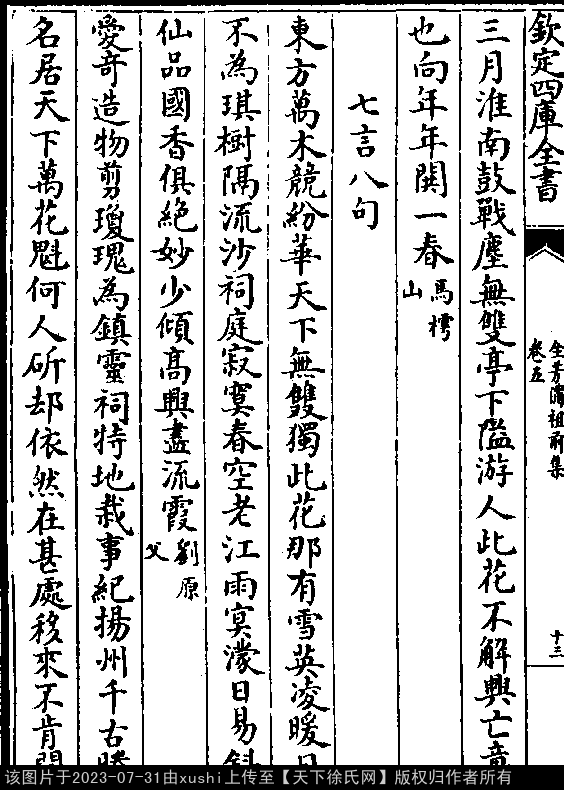 欽定四庫全書
全芳備祖前集
卷五
十三
三月淮南鼓戰塵無雙亭下隘游人此花不解興亡意
也向年年開一春馬樗山
七言八句
東方萬木競紛華天下無雙獨此花那有雪英凌暖日
不為琪樹隔流沙祠庭寂寞春空老江雨㝠濛日易斜
仙品國香俱絶妙少傾髙興盡流霞劉原父
愛竒造物剪瓊瑰為鎮靈祠特地栽事紀揚州千古勝
名居天下萬花魁何人斫却依然在甚處移來不肯開
该图片于2023-07-31由xushi上传至【天下徐氏网】版权归作者所有